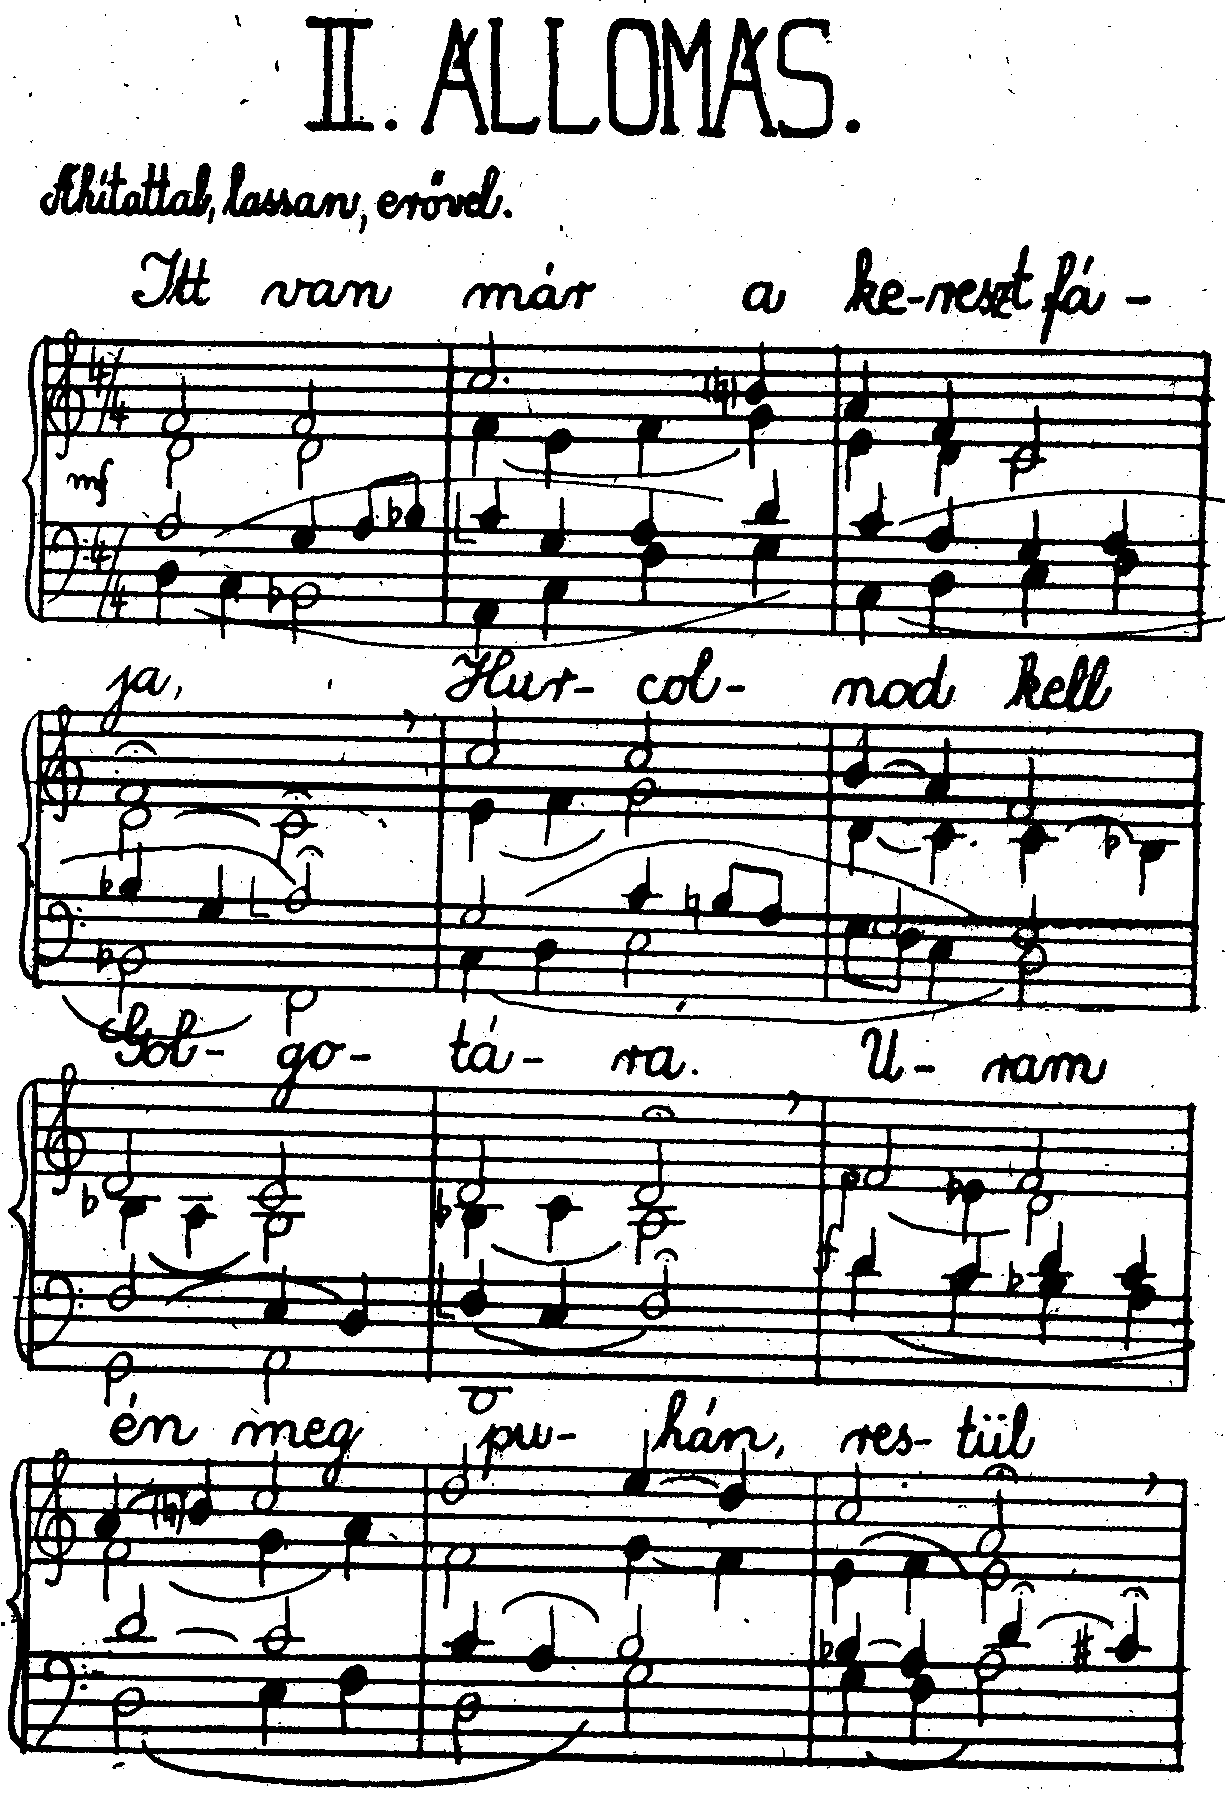 II. ÁLLOMÁS.
Áhitattal, lassan, erővel.
Itt van már a ke-reszt fá-
4/4
mf
4/4
ja, Hur- col- nod kell
Gol- go- tá- ra. U- ram
f
én meg pu- hán, res- tül